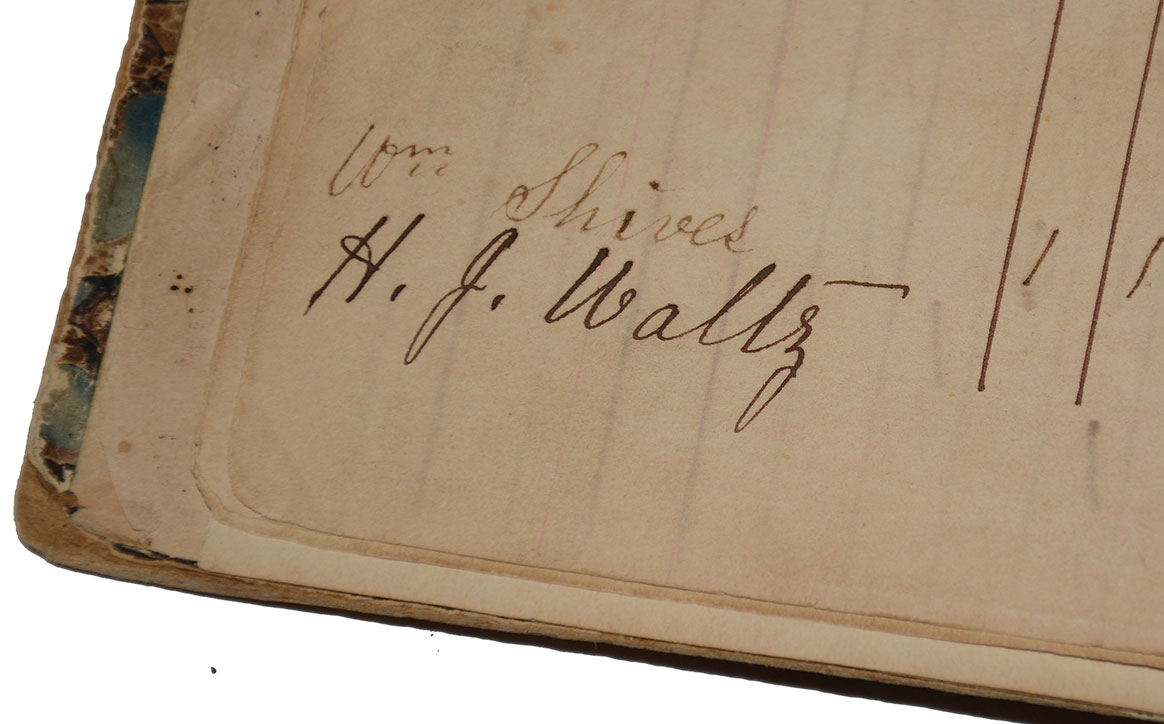 Wm Shives 1 1
H. J. Waltz